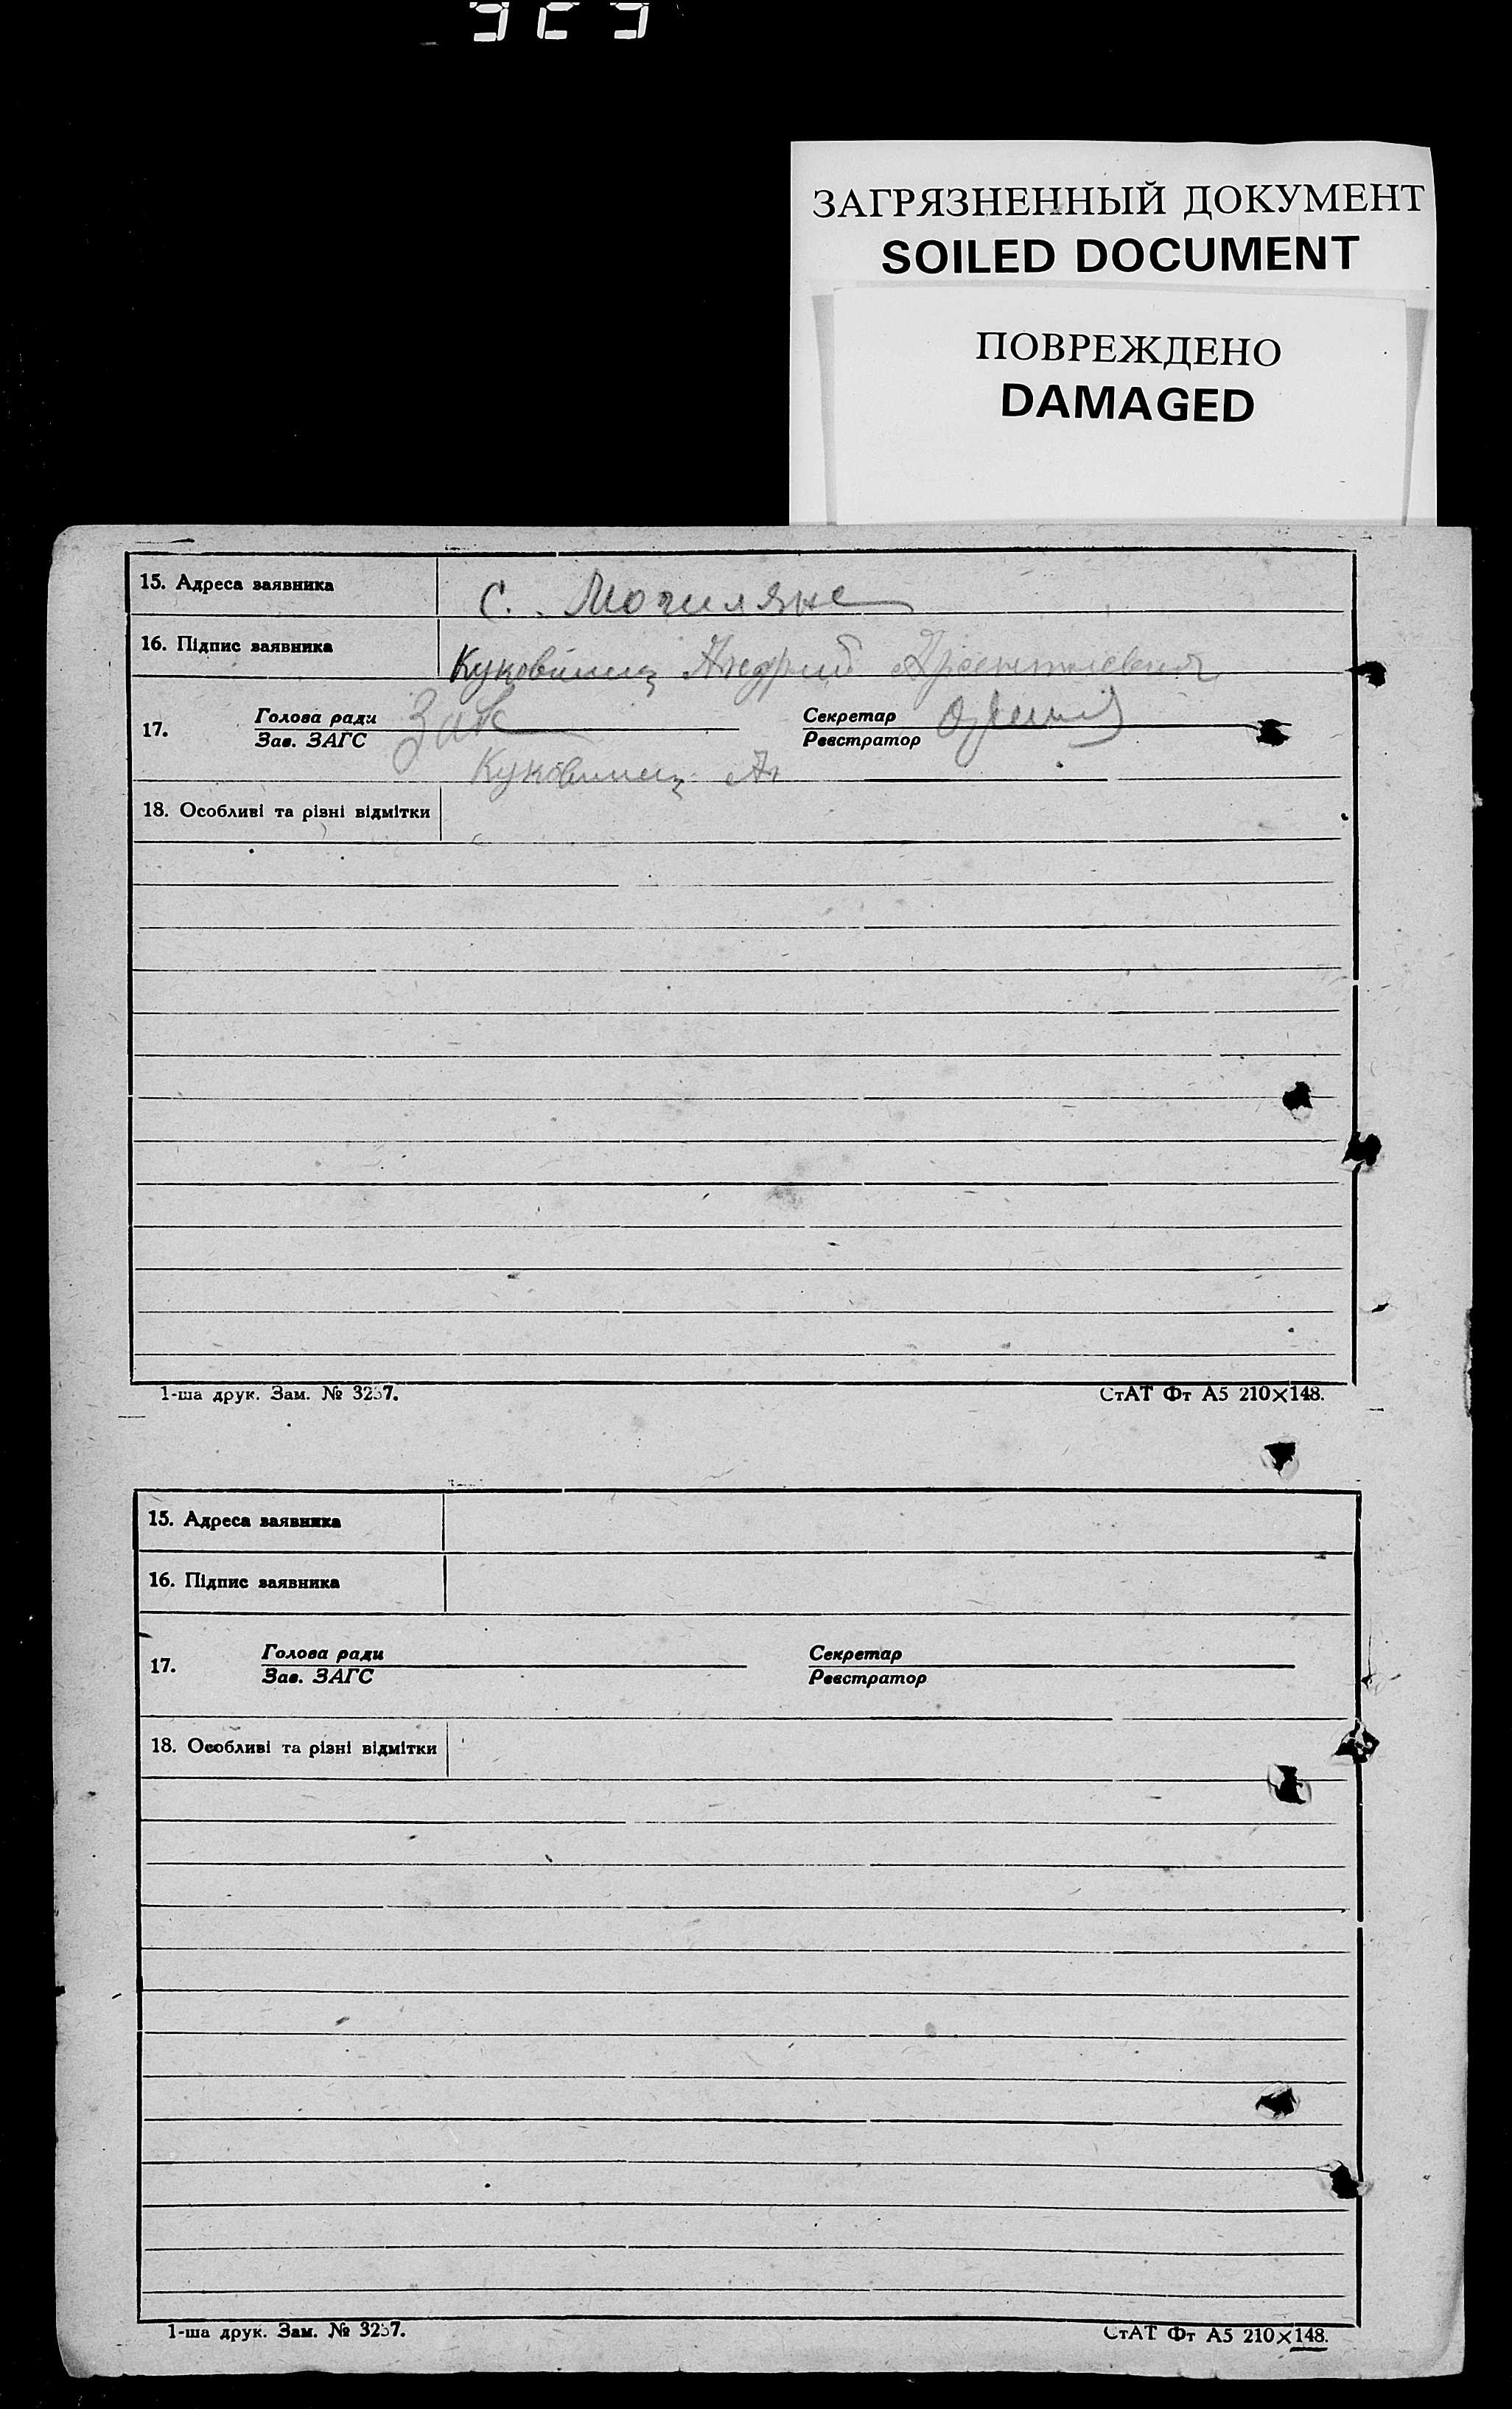 ЗАГРЯЗНЕННЫЙ ДОКУМЕНТ
SOILED DOCUMENT
ПОВРЕЖДЕНО
DAMAGED
15. Адреса заявника с. Могиляне
16. Підпис заявника Андрий
17. Голова ради Секретар
Зав. ЗАГС Реєстратор
18. Особливі та різні відмітки
1-ша друк. Зам. № СтАТ Фт А5 210×148.
15. Адреса заявника
16. Підпис заявника
17. Голова ради Секретар
Зав. ЗАГС Реєстратор
18. Особливі та різні відмітки
1-ша друк. Зам. № СтАТ Фт А5 210×148.